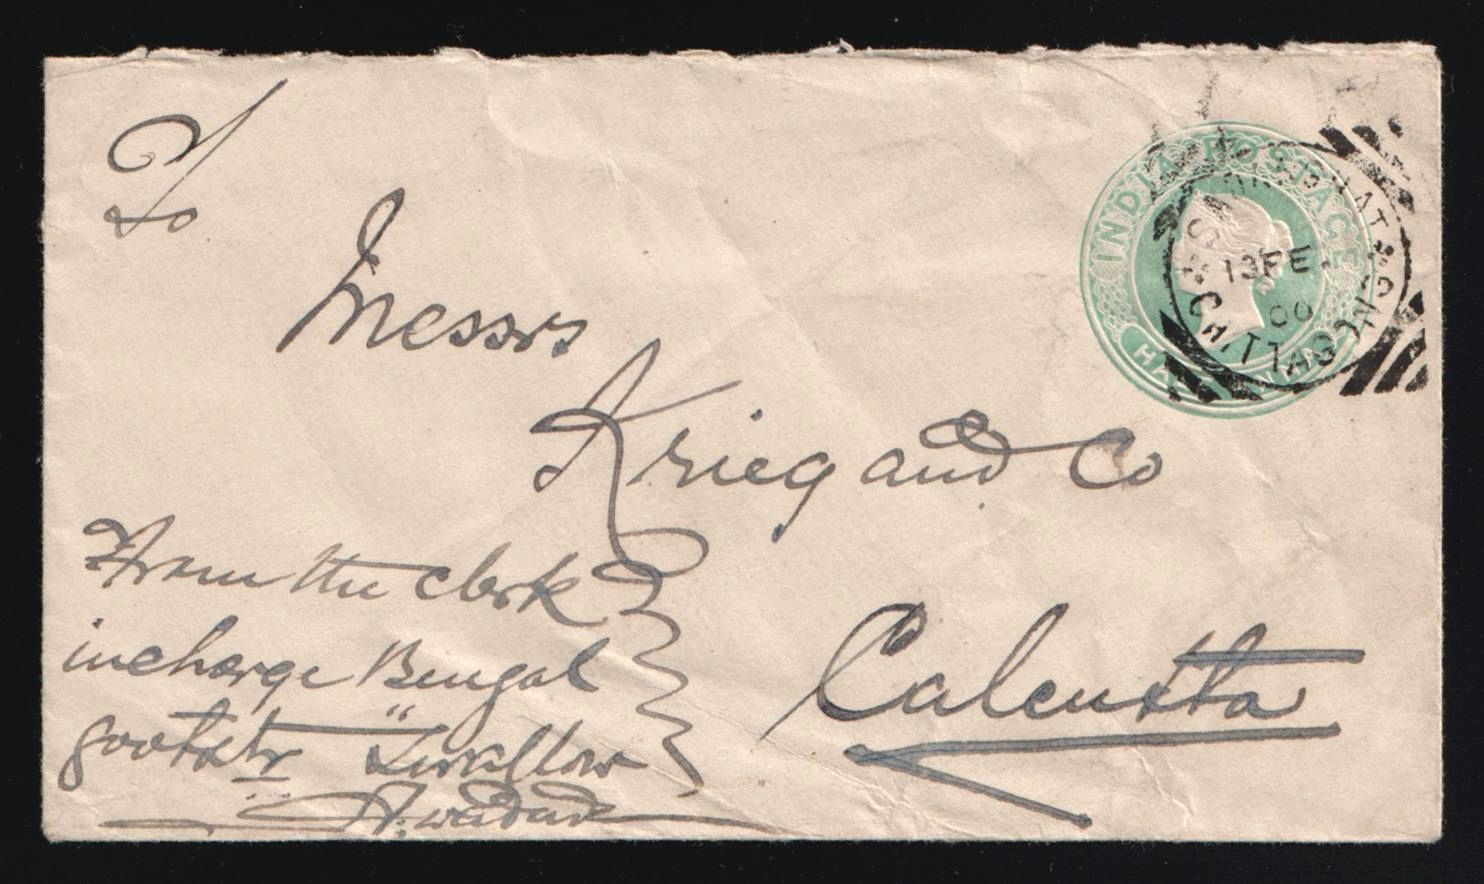 To
Messrs
Krieg and Co
Calcutta
From the clerk
incharge Bengal
govt str "Swallow
INDIA POSTAGE
HALF ANNA
CHITTAGONG
13 FE
00